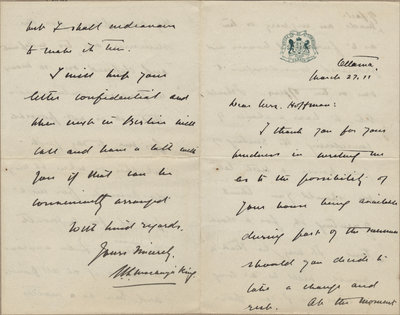 Ottawa,
March 27. 11
Dear Mrs. Hoffman:
I thank you for your
kindness in writing me
as to the possibility of
your house being available
during part of the summer
should you decide to
take a change and
rest. At the moment
but I shall endeavour
to make it
I will keep your
letter confidential and
when next in Berlin will
call and have a talk with
you if that can be
conveniently arranged.
With kind regards.
Yours sincerely,
W L Mackenzie King